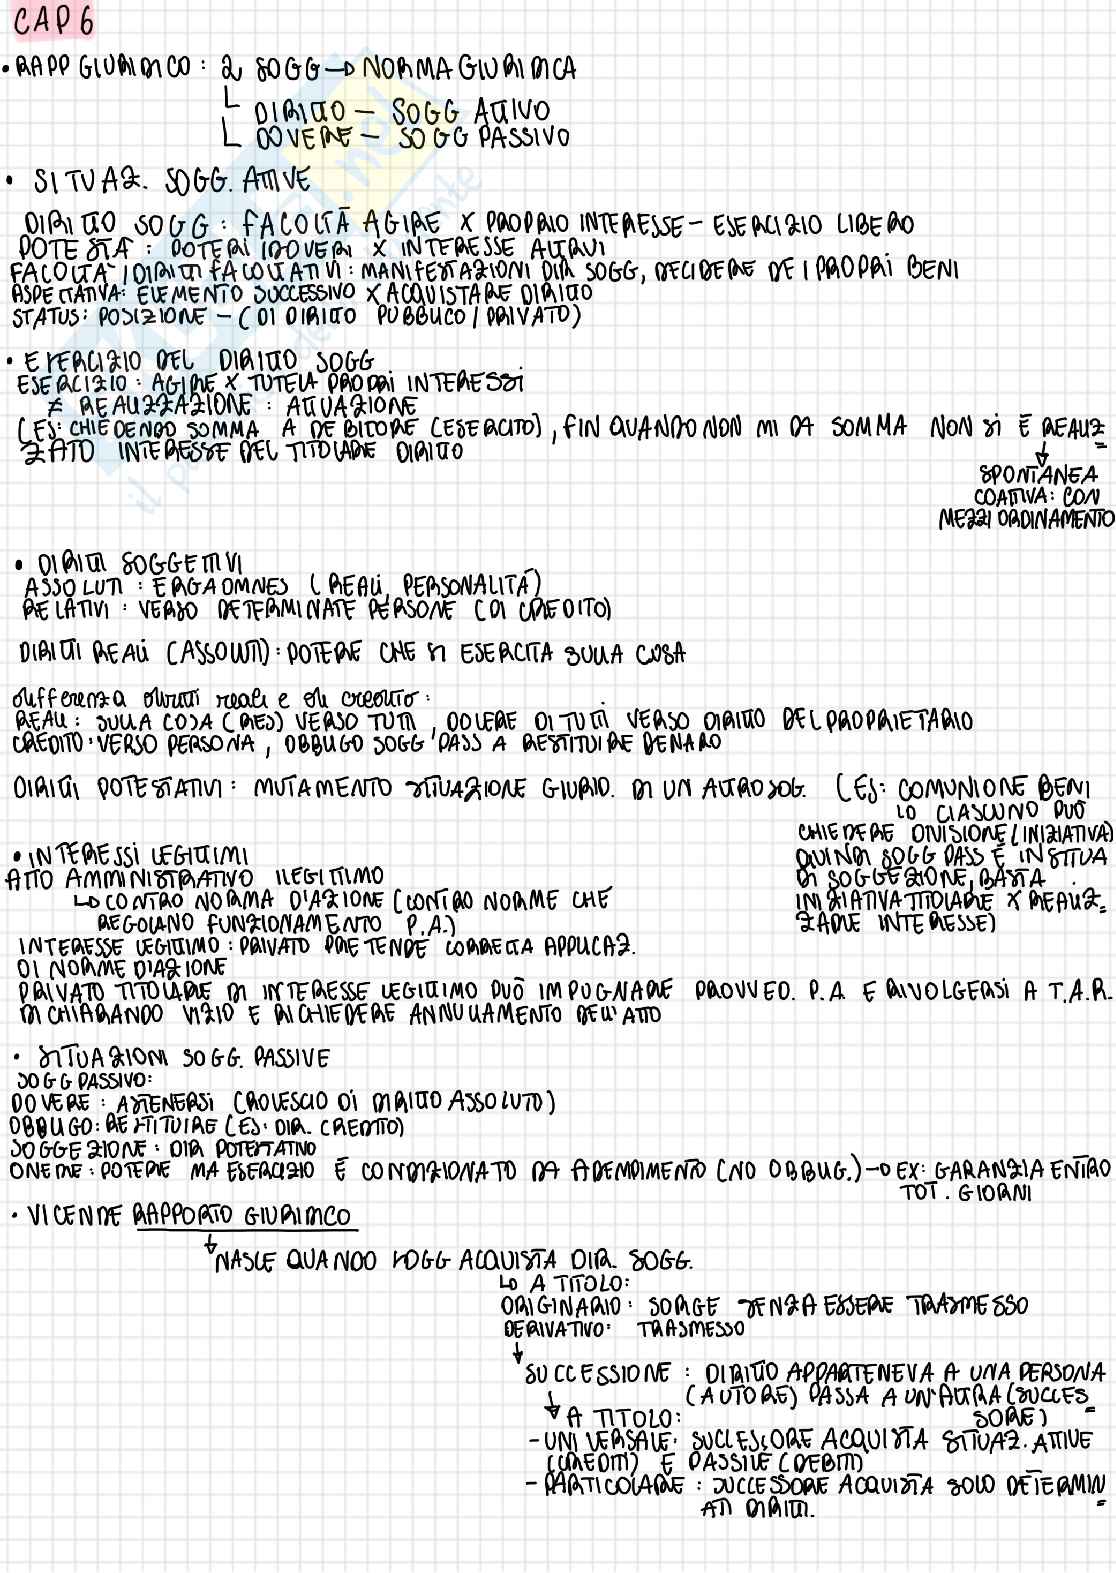 CAP 6
• RAPP GIURIDICO : 2 SOGG → NORMA GIURIDICA
DIRITTO — SOGG ATTIVO
DOVERE — SOGG PASSIVO
• SITUAZ. SOGG. ATTIVE
DIRITTO SOGG : FACOLTÀ AGIRE X PROPRIO INTERESSE - ESERCIZIO LIBERO
POTESTÀ : POTERI / DOVERI X INTERESSE ALTRUI
FACOLTÀ / DIRITTI FACOLTATIVI : MANIFESTAZIONI DIR SOGG, DECIDERE DEI PROPRI BENI
ASPETTATIVA: ELEMENTO SUCCESSIVO X ACQUISTARE DIRITTO
STATUS: POSIZIONE - (DI DIRITTO PUBBLICO / PRIVATO)
• ESERCIZIO DEL DIRITTO SOGG
ESERCIZIO : AGIRE X TUTELA PROPRI INTERESSI
≠ REALIZZAZIONE : ATTUAZIONE
(ES: CHIEDENDO SOMMA A DEBITORE (ESERCITO), FIN QUANDO NON MI DA SOMMA NON SI È REALIZ=
ZATO INTERESSE DEL TITOLARE DIRITTO
↓
SPONTANEA
COATTIVA: CON
MEZZI ORDINAMENTO
• DIRITTI SOGGETTIVI
ASSOLUTI : ERGA OMNES (REALI, PERSONALITÀ)
RELATIVI : VERSO DETERMINATE PERSONE (DI CREDITO)
DIRITTI REALI (ASSOLUTI) : POTERE CHE SI ESERCITA SULLA COSA
differenza diritti reali e di credito :
REALI : SULLA COSA (RES) VERSO TUTTI, DOVERE DI TUTTI VERSO DIRITTO DEL PROPRIETARIO
CREDITO : VERSO PERSONA, OBBLIGO SOGG PASS A RESTITUIRE DENARO
DIRITTI POTESTATIVI : MUTAMENTO SITUAZIONE GIURID. DI UN ALTRO SOG. (ES: COMUNIONE BENI
↳ CIASCUNO PUÒ
CHIEDERE DIVISIONE (INIZIATIVA)
QUINDI SOGG PASS È IN SITUA
DI SOGGEZIONE, BASTA
INIZIATIVA TITOLARE X REALIZ=
ZARE INTERESSE)
• INTERESSI LEGITTIMI
ATTO AMMINISTRATIVO ILEGITTIMO
↳ CONTRO NORMA D'AZIONE (CONTRO NORME CHE
REGOLANO FUNZIONAMENTO P.A.)
INTERESSE LEGITTIMO : PRIVATO PRETENDE CORRETTA APPLICAZ.
DI NORME D'AZIONE
PRIVATO TITOLARE DI INTERESSE LEGITTIMO PUÒ IMPUGNARE PROVVED. P.A. E RIVOLGERSI A T.A.R.
DICHIARANDO VIZIO E RICHIEDERE ANNULLAMENTO DELL'ATTO
• SITUAZIONI SOGG. PASSIVE
SOGG PASSIVO:
DOVERE : ASTENERSI (ROVESCIO DI DIRITTO ASSOLUTO)
OBBLIGO: RESTITUIRE (ES: DIR. CREDITO)
SOGGEZIONE : DIR POTESTATIVO
ONERE : POTERE MA ESERCIZIO È CONDIZIONATO DA ADEMPIMENTO (NO OBBLIG.) → EX: GARANZIA ENTRO
TOT. GIORNI
• VICENDE RAPPORTO GIURIDICO
↓ NASCE QUANDO SOGG ACQUISTA DIR. SOGG.
↳ A TITOLO:
ORIGINARIO : SORGE SENZA ESSERE TRASMESSO
DERIVATIVO: TRASMESSO
↓ SUCCESSIONE : DIRITTO APPARTENEVA A UNA PERSONA
(AUTORE) PASSA A UN'ALTRA (SUCCES=
SORE)
↓ A TITOLO:
- UNIVERSALE: SUCCESSORE ACQUISTA SITUAZ. ATTIVE
(CREDITI) E PASSIVE (DEBITI)
- PARTICOLARE : SUCCESSORE ACQUISTA SOLO DETERMIN=
ATI DIRITTI.